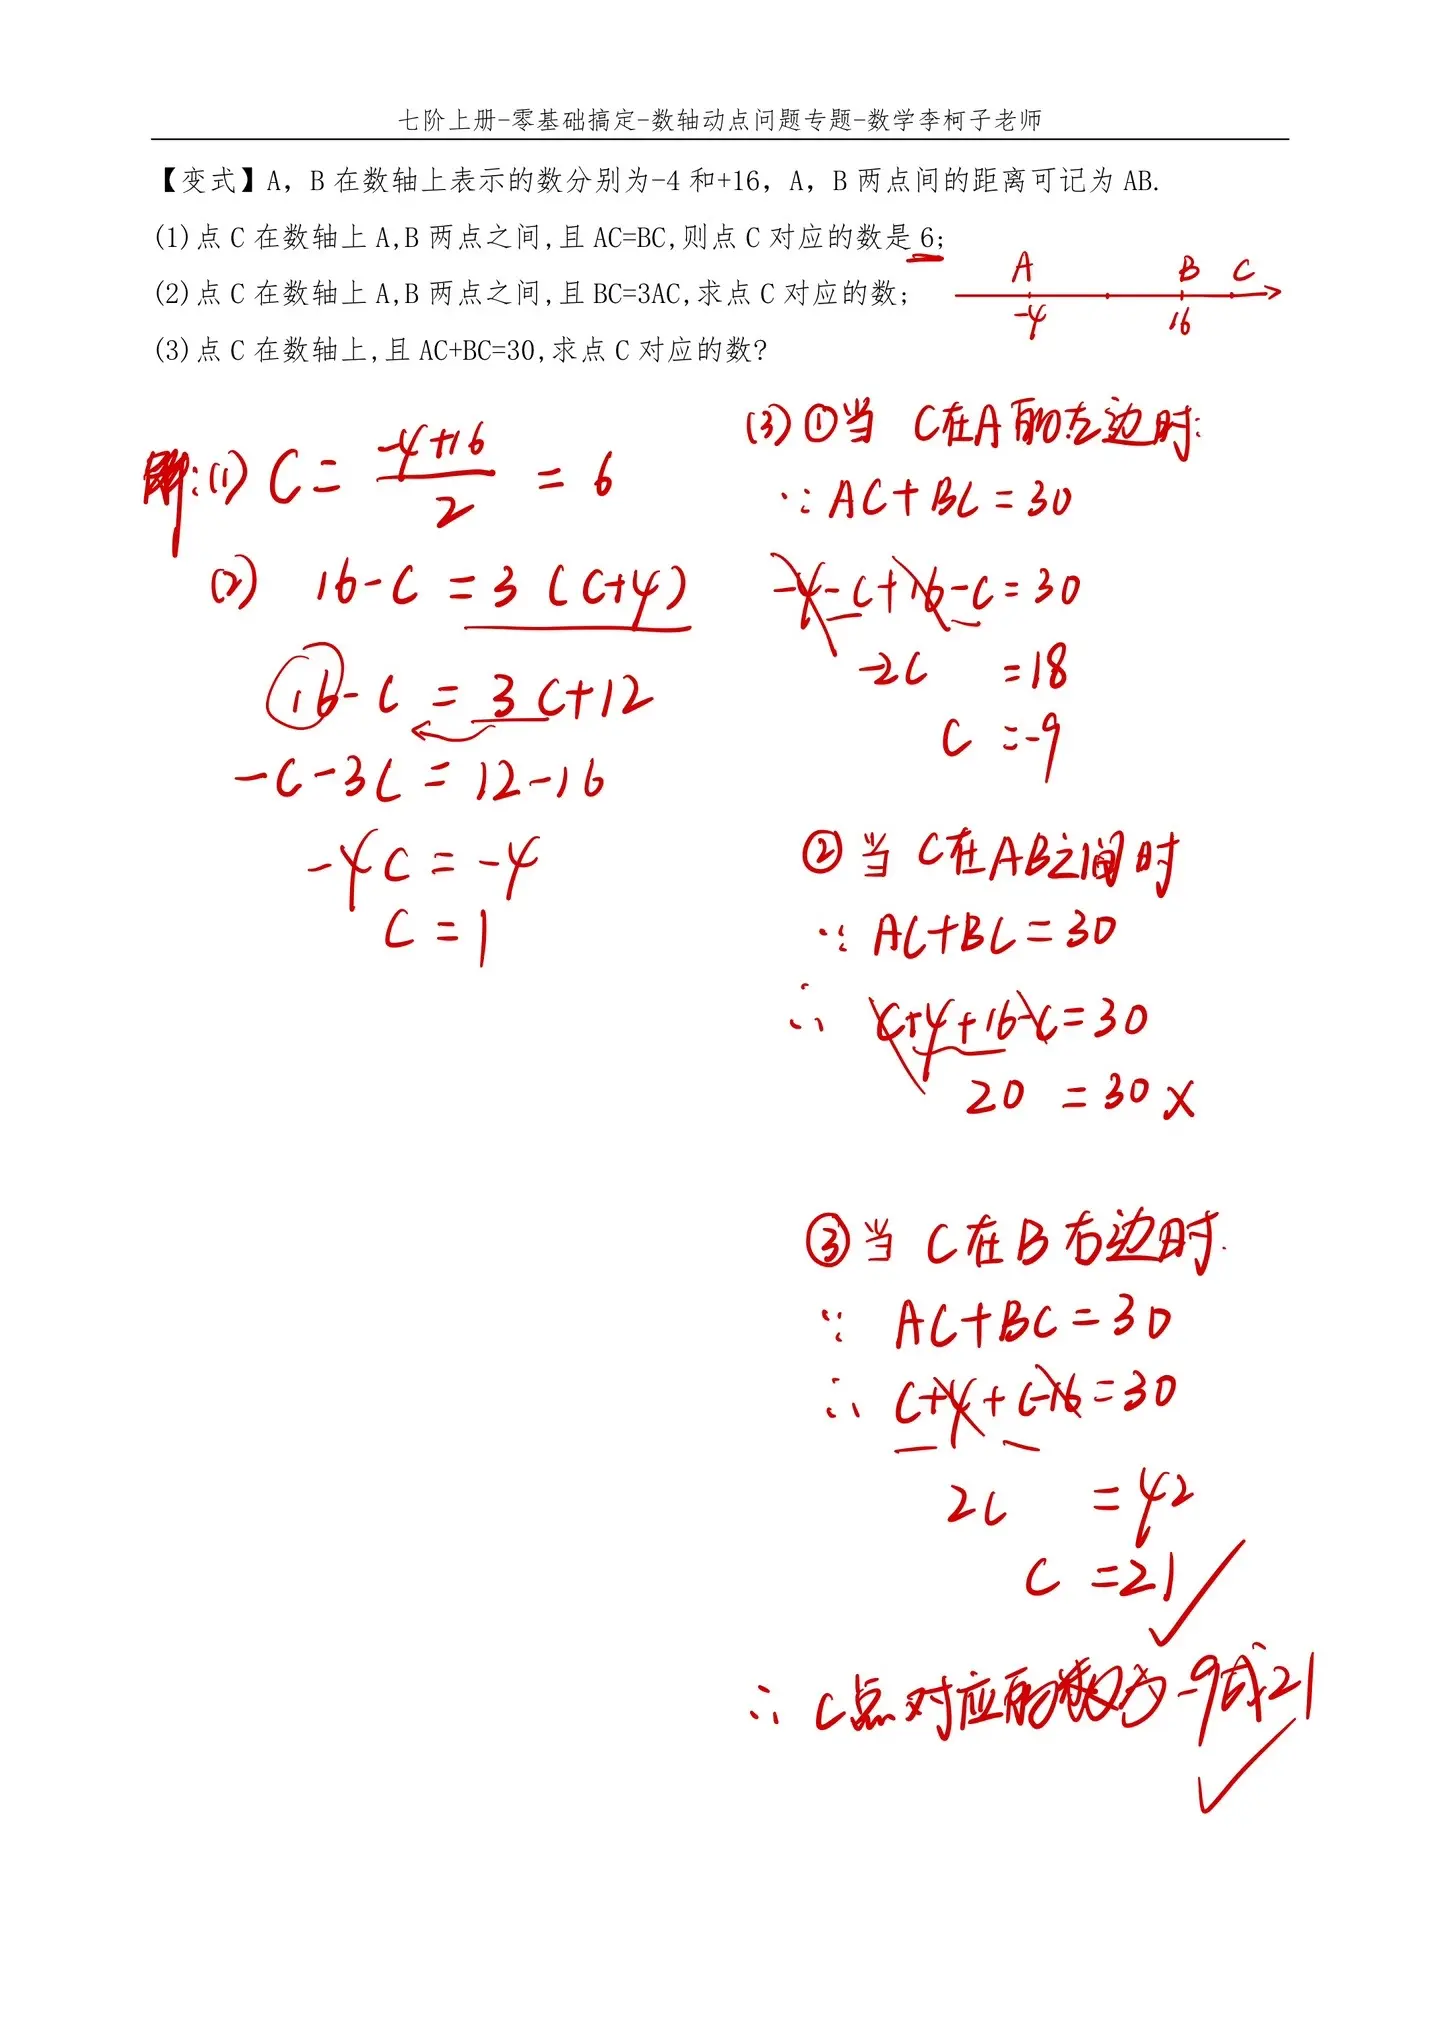 七阶上册-零基础搞定-数轴动点问题专题-数学李柯子老师
【变式】A，B在数轴上表示的数分别为-4和+16，A，B两点间的距离可记为AB.
(1)点C在数轴上A,B两点之间,且AC=BC,则点C对应的数是6；
(2)点C在数轴上A,B两点之间,且BC=3AC,求点C对应的数；
(3)点C在数轴上,且AC+BC=30,求点C对应的数?
A B C
-4 16
解:(1) C = (-4+16)/2 = 6
(2) 16-C = 3(C+4)
16-C = 3C+12
-C-3C = 12-16
-4C = -4
C = 1
(3) ①当 C在A的左边时:
∵ AC+BC=30
-4-C+16-C=30
-2C =18
C =-9
②当 C在AB之间时
∵ AC+BC=30
∴ C+4+16-C=30
20 =30 ×
③当 C在B右边时.
∵ AC+BC=30
∴ C+4+C-16=30
2C =42
C =21 ✓
∴ C点对应的数为-9或21
✓